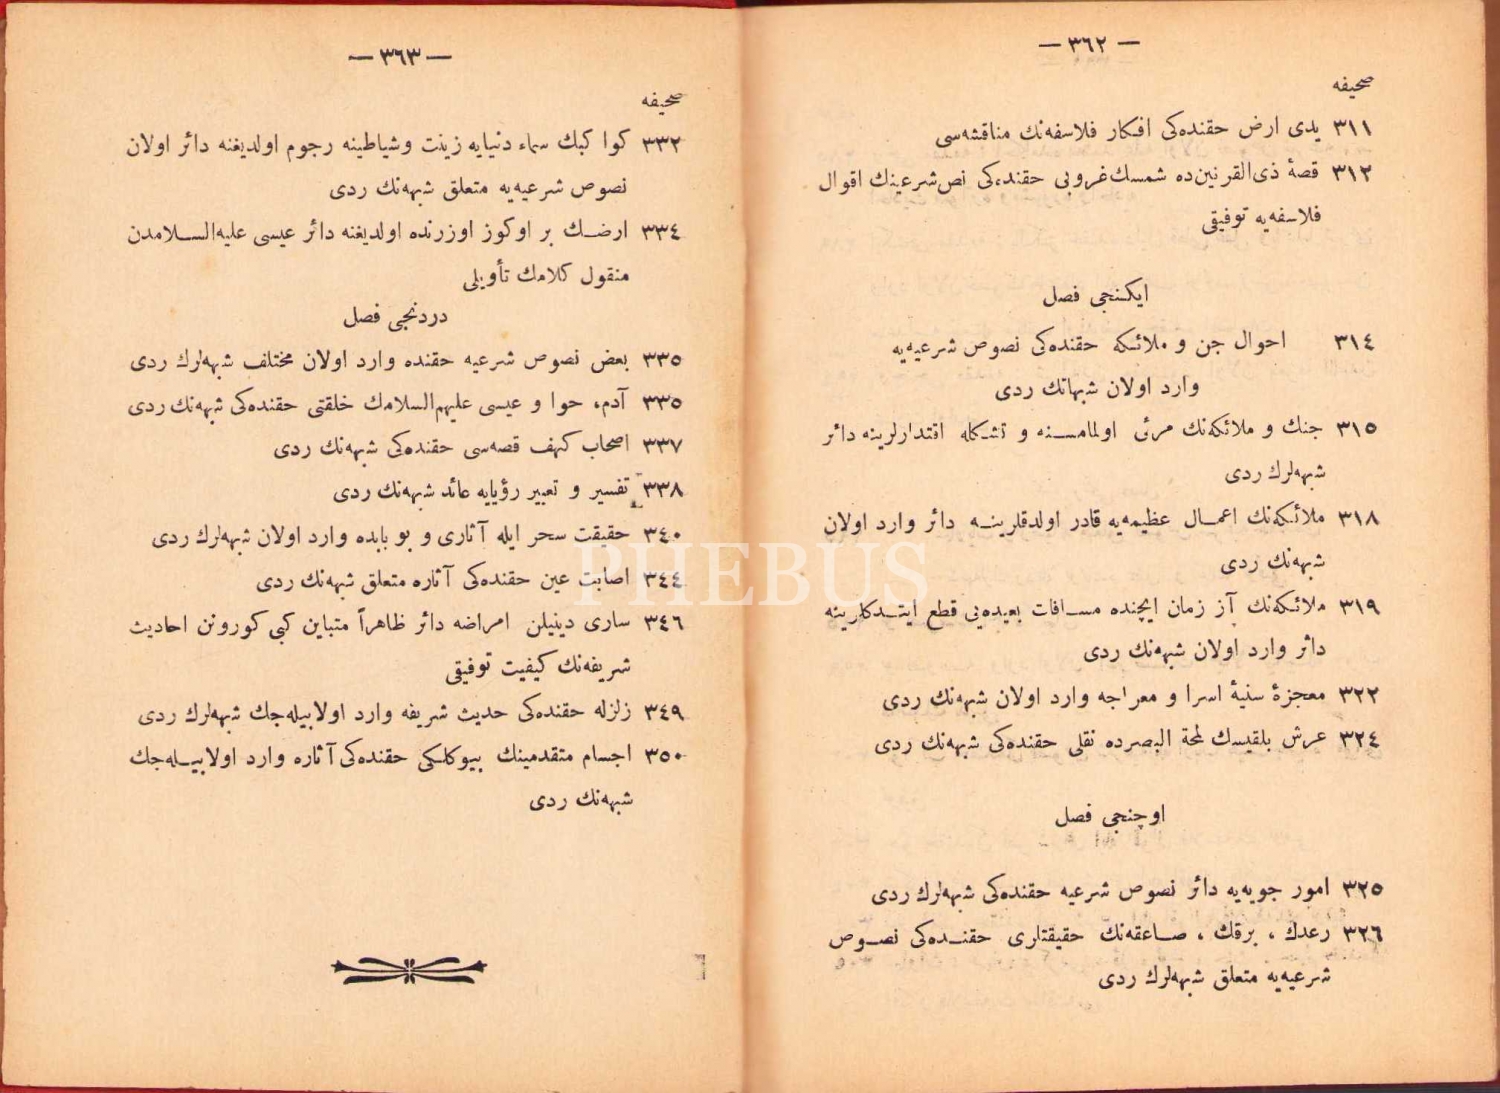 — ٣٦٢ —
صحیفه
٣١١ یدی ارض حقنده‌كی افكار فلاسفه‌نك مناقشه‌سی
٣١٢ قصهٔ ذی‌القرنین‌ده شمسك غروبی حقنده‌كی نص شرعینك اقوال
فلاسفه‌یه توفیقی
ایكنجی فصل
٣١٤ احوال جن و ملائكه حقنده‌كی نصوص شرعیه‌یه
وارد اولان شبهاتك ردی
٣١٥ جنك و ملائكه‌نك مرئی اولمامسنه و تشكله اقتدارلرینه دائر
شبهه‌لرك ردی
٣١٨ ملائكه‌نك اعمال عظیمه‌یه قادر اولدقلرینه دائر وارد اولان
شبهه‌نك ردی
٣١٩ ملائكه‌نك آز زمان ایچنده مسافات بعیده‌یی قطع ایتدكلرینه
دائر وارد اولان شبهه‌نك ردی
٣٢٢ معجزهٔ سنیهٔ اسرا و معراجه وارد اولان شبهه‌نك ردی
٣٢٤ عرش بلقیسك لمحة البصرده نقلی حقنده‌كی شبهه‌نك ردی
اوچنجی فصل
٣٢٥ امور جویه‌یه دائر نصوص شرعیه حقنده‌كی شبهه‌لرك ردی
٣٢٦ رعدك ، برقك ، صاعقه‌نك حقیقتلری حقنده‌كی نصوص
شرعیه‌یه متعلق شبهه‌لرك ردی
— ٣٦٣ —
صحیفه
٣٣٢ كواكبك سماء دنیایه زینت وشیاطینه رجوم اولدیغنه دائر اولان
نصوص شرعیه‌یه متعلق شبهه‌نك ردی
٣٣٤ ارضك بر اوكوز اوزرنده اولدیغنه دائر عیسی علیه‌السلامدن
منقول كلامك تأویلی
دردنجی فصل
٣٣٥ بعض نصوص شرعیه حقنده وارد اولان مختلف شبهه‌لرك ردی
٣٣٥ آدم، حوا و عیسی علیهم‌السلامك خلقتی حقنده‌كی شبهه‌نك ردی
٣٣٧ اصحاب كهف قصه‌سی حقنده‌كی شبهه‌نك ردی
٣٣٨ تفسیر و تعبیر رؤیایه عائد شبهه‌نك ردی
٣٤٠ حقیقت سحر ایله آثاری و بو بابده وارد اولان شبهه‌لرك ردی
٣٤٤ اصابت عین حقنده‌كی آثاره متعلق شبهه‌نك ردی
٣٤٦ ساری دینیلن امراضه دائر ظاهراً متباین كبی كورونن احادیث
شریفه‌نك كیفیت توفیقی
٣٤٩ زلزله حقنده‌كی حدیث شریفه وارد اولابیله‌جك شبهه‌لرك ردی
٣٥٠ اجسام متقدمینك بیوكلكی حقنده‌كی آثاره وارد اولابیله‌جك
شبهه‌نك ردی
PHEBUS